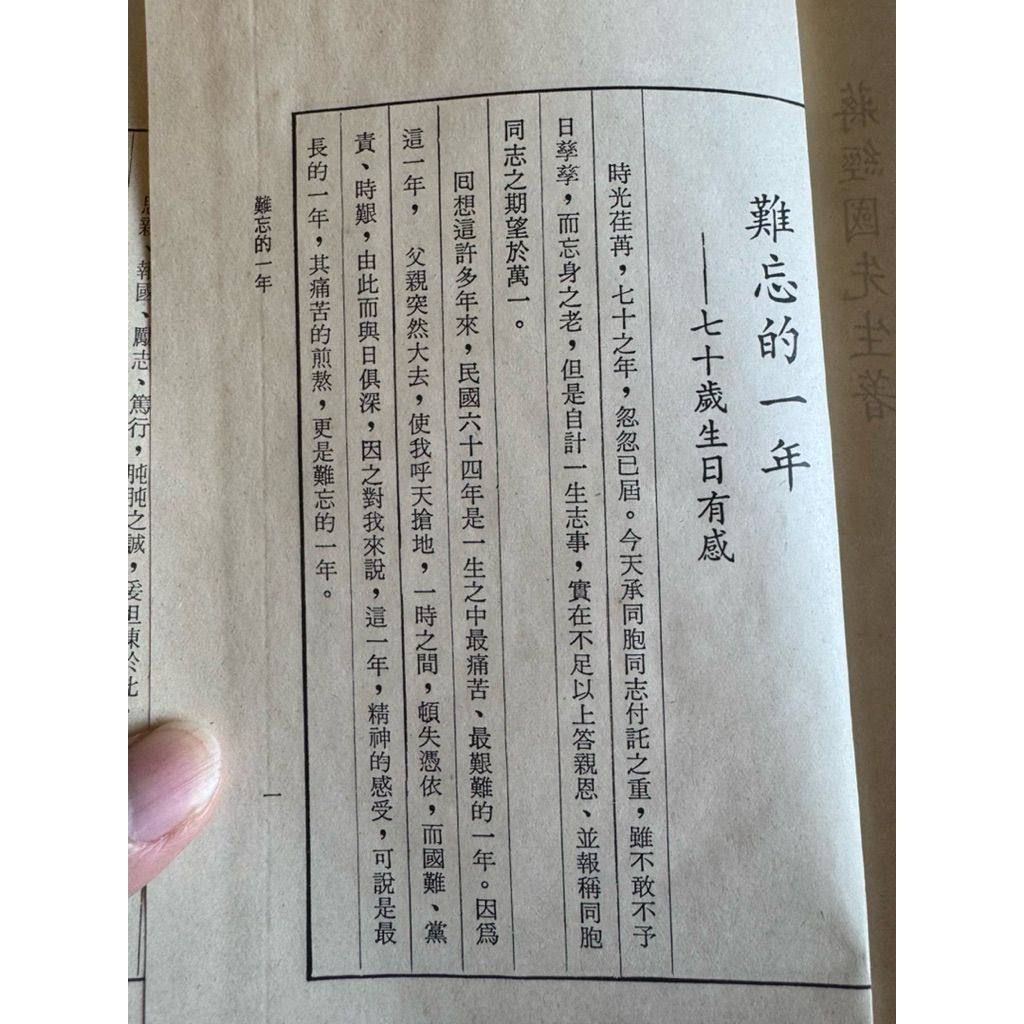 蔣經國先生著
難忘的一年
——七十歲生日有感
時光荏苒，七十之年，忽忽已屆。今天承同胞同志付託之重，雖不敢不予
日孳孳，而忘身之老，但是自計一生志事，實在不足以上答親恩、並報稱同胞
同志之期望於萬一。
囘想這許多年來，民國六十四年是一生之中最痛苦、最艱難的一年。因爲
這一年，　父親突然大去，使我呼天搶地，一時之間，頓失憑依，而國難、黨
責、時艱，由此而與日俱深，因之對我來說，這一年，精神的感受，可說是最
長的一年，其痛苦的煎熬，更是難忘的一年。
難忘的一年
一
思親、報國、勵志、篤行，肫肫之誠，